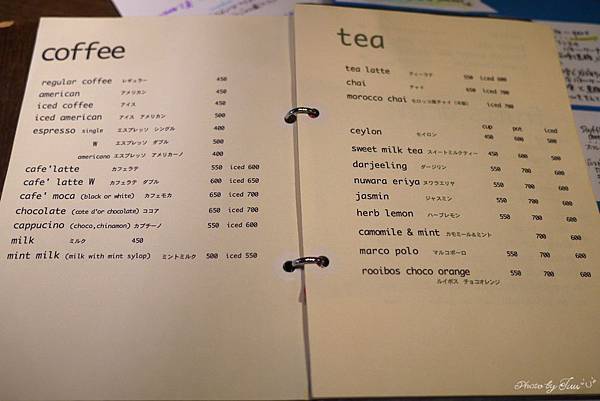 coffee
regular coffee レギュラー 450
american アメリカン 450
iced coffee アイス 450
iced american アイス アメリカン 500
espresso single エスプレッソ シングル 400
W エスプレッソ ダブル 500
americano エスプレッソ アメリカーノ 400
cafe'latte カフェラテ 550 iced 600
cafe' latte W カフェラテ ダブル 600 iced 650
cafe' moca (black or white) カフェモカ 650 iced 700
chocolate (cote d'or chocolate) ココア 650 iced 700
cappucino (choco,chinamon) カプチーノ 550 iced 600
milk ミルク 450
mint milk (milk with mint sylop) ミントミルク 500 iced 550
tea
tea latte ティーラテ 550 iced 600
chai チャイ 650 iced 700
morocco chai モロッコ風チャイ (冷製) iced 700
cup pot iced
ceylon セイロン 450 600 500
sweet milk tea スイートミルクティー 450 600 500
darjeeling ダージリン 550 700 600
nuwara eriya ヌワラエリヤ 550 700 600
jasmin ジャスミン 550 700 600
herb lemon ハーブレモン 550 700 600
camomile & mint カモミール&ミント 700 600
marco polo マルコポーロ 550 700 600
rooibos choco orange 550 700 600
ルイボス チョコオレンジ
Photo by